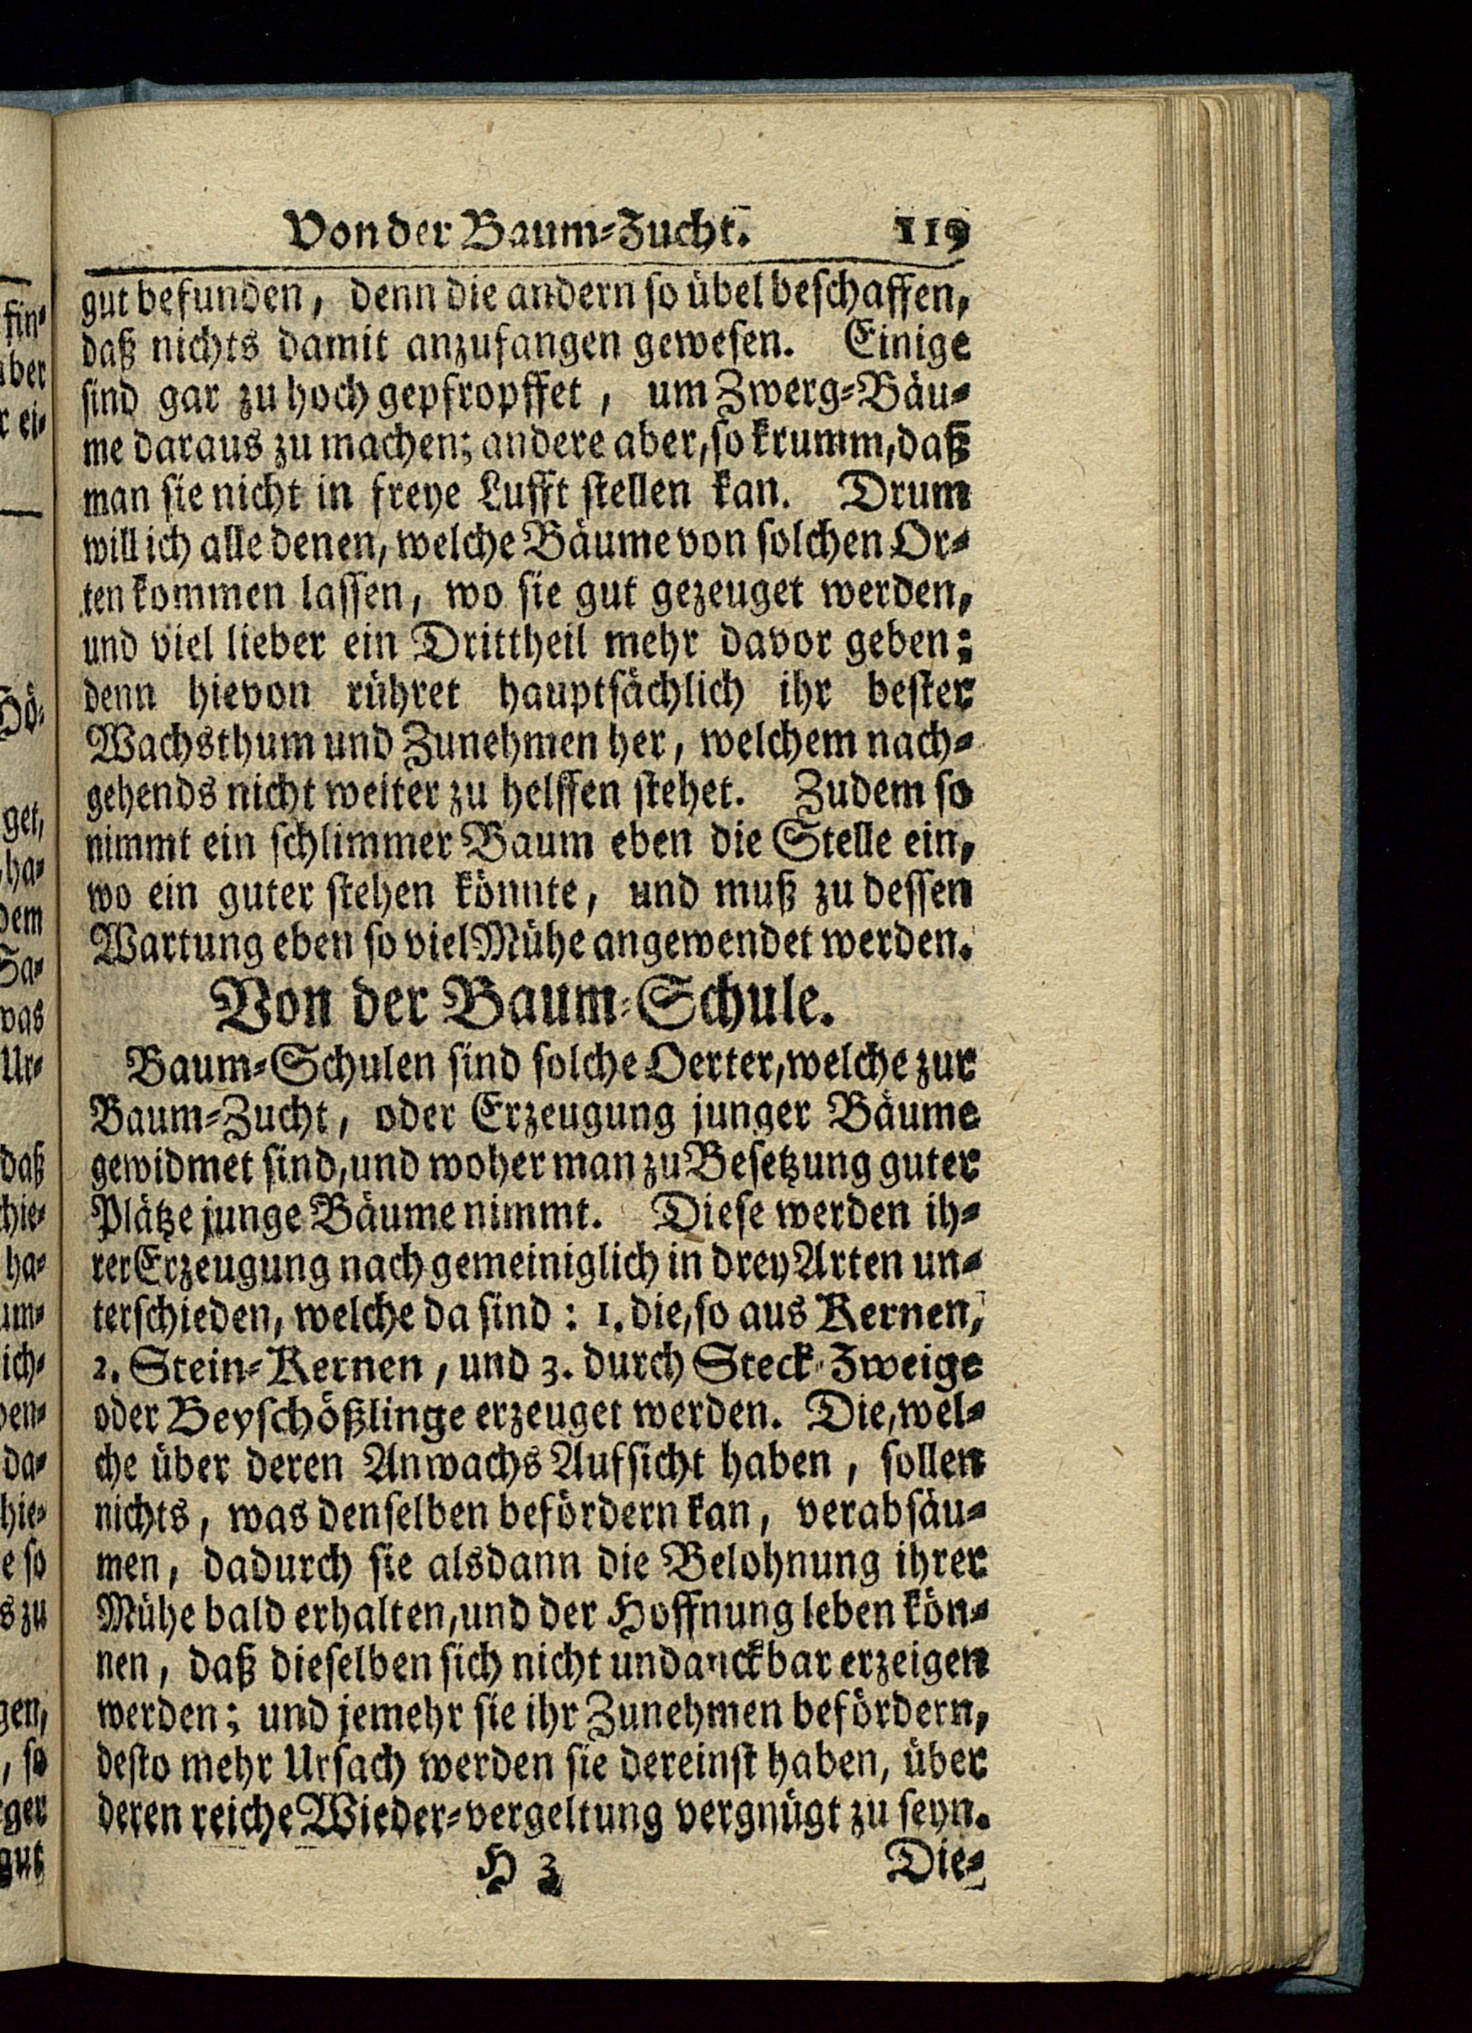 Von der Baum-Zucht. 119
gut befunden, denn die andern so übel beschaffen,
daß nichts damit anzufangen gewesen. Einige
sind gar zu hoch gepfropffet, um Zwerg-Bäu-
me daraus zu machen; andere aber, so krumm, daß
man sie nicht in freye Lufft stellen kan. Drum
will ich alle denen, welche Bäume von solchen Or-
ten kommen lassen, wo sie gut gezeuget werden,
und viel lieber ein Drittheil mehr davor geben:
denn hievon rühret hauptsächlich ihr bester
Wachsthum und Zunehmen her, welchem nach-
gehends nicht weiter zu helffen stehet. Zudem so
nimmt ein schlimmer Baum eben die Stelle ein,
wo ein guter stehen könnte, und muß zu dessen
Wartung eben so viel Mühe angewendet werden.
Von der Baum-Schule.
Baum-Schulen sind solche Oerter, welche zur
Baum-Zucht, oder Erzeugung junger Bäume
gewidmet sind, und woher man zu Besetzung guter
Plätze junge Bäume nimmt. Diese werden ih-
rer Erzeugung nach gemeiniglich in drey Arten un-
terschieden, welche da sind: 1. die, so aus Kernen,
2. Stein-Kernen, und 3. durch Steck-Zweige
oder Beyschößlinge erzeuget werden. Die, wel-
che über deren Anwachs Aufsicht haben, sollen
nichts, was denselben befördern kan, verabsäu-
men, dadurch sie alsdann die Belohnung ihrer
Mühe bald erhalten, und der Hoffnung leben kön-
nen, daß dieselben sich nicht undanckbar erzeigen
werden; und jemehr sie ihr Zunehmen befördern,
desto mehr Ursach werden sie dereinst haben, über
deren reiche Wieder-vergeltung vergnügt zu seyn.
H 3 Die-